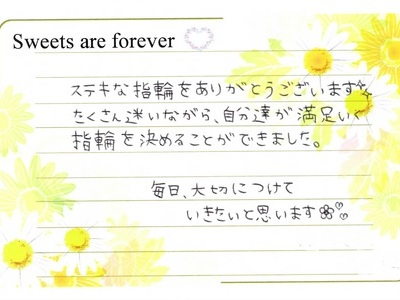 Sweets are forever
ステキな指輪をありがとうございます
たくさん迷いながら、自分達が満足いく
指輪を決めることができました。
毎日、大切につけて
いきたいと思います